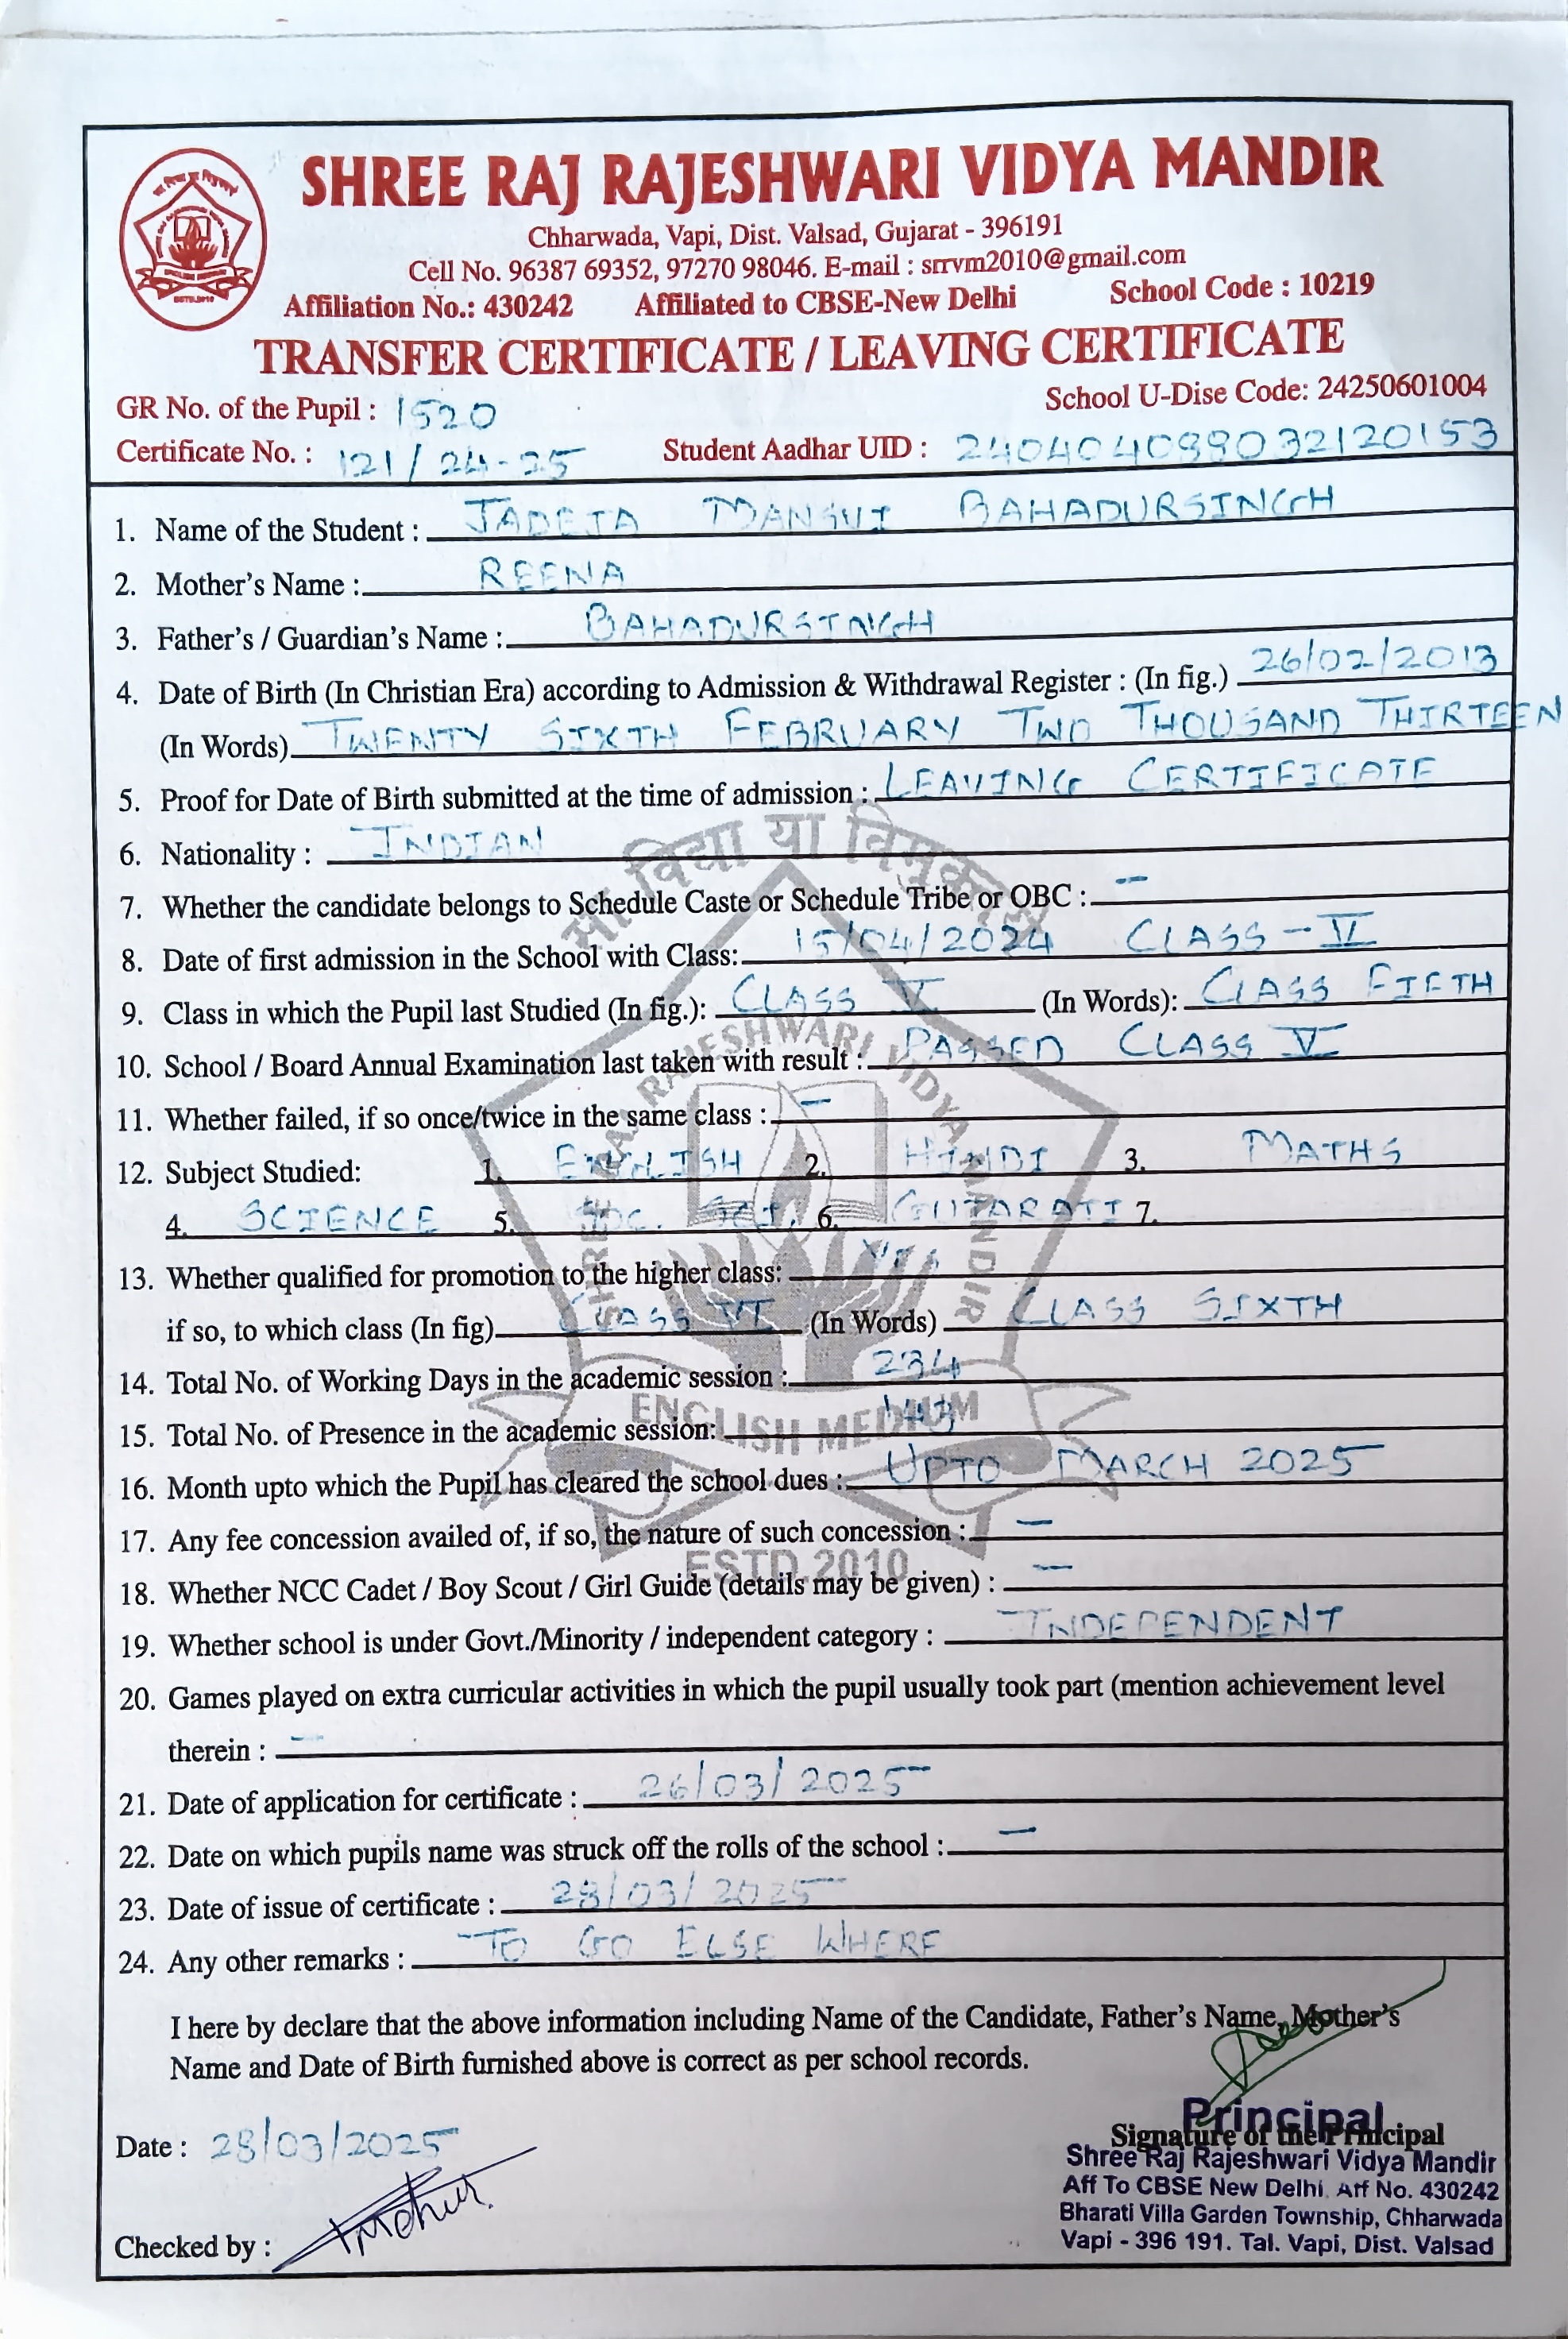 SHREE RAJ RAJESHWARI VIDYA MANDIR
Chharwada, Vapi, Dist. Valsad, Gujarat - 396191
Cell No. 96387 69352, 97270 98046. E-mail : srrvm2010@gmail.com
Affiliation No.: 430242 Affiliated to CBSE-New Delhi School Code : 10219
TRANSFER CERTIFICATE / LEAVING CERTIFICATE
School U-Dise Code: 24250601004
GR No. of the Pupil : 1520
Certificate No. : 121/24-25 Student Aadhar UID :
1. Name of the Student : JADEJA MANSVI BAHADURSINGH
2. Mother's Name : REENA
3. Father's / Guardian's Name : BAHADURSINGH
4. Date of Birth (In Christian Era) according to Admission & Withdrawal Register : (In fig.) 26/02/2013
(In Words) TWENTY SIXTH FEBRUARY TWO THOUSAND THIRTEEN
5. Proof for Date of Birth submitted at the time of admission : LEAVING CERTIFICATE
6. Nationality : INDIAN
7. Whether the candidate belongs to Schedule Caste or Schedule Tribe or OBC : -
8. Date of first admission in the School with Class: 15/04/2024 CLASS - V
9. Class in which the Pupil last Studied (In fig.): CLASS V (In Words): CLASS FIFTH
10. School / Board Annual Examination last taken with result : PASSED CLASS V
11. Whether failed, if so once/twice in the same class : -
12. Subject Studied: 1. ENGLISH 2. HINDI 3. MATHS
4. SCIENCE 5. SOC. SCI. 6. GUJARATI 7.
13. Whether qualified for promotion to the higher class: YES
if so, to which class (In fig) CLASS VI (In Words) CLASS SIXTH
14. Total No. of Working Days in the academic session : 234
15. Total No. of Presence in the academic session:
16. Month upto which the Pupil has cleared the school dues : UPTO MARCH 2025
17. Any fee concession availed of, if so, the nature of such concession : -
18. Whether NCC Cadet / Boy Scout / Girl Guide (details may be given) : -
19. Whether school is under Govt./Minority / independent category : INDEPENDENT
20. Games played on extra curricular activities in which the pupil usually took part (mention achievement level
therein : -
21. Date of application for certificate : 26/03/2025
22. Date on which pupils name was struck off the rolls of the school : -
23. Date of issue of certificate : 28/03/2025
24. Any other remarks : TO GO ELSE WHERE
I here by declare that the above information including Name of the Candidate, Father's Name, Mother's
Name and Date of Birth furnished above is correct as per school records.
Date : 28/03/2025
Principal
Signature of the Principal
Shree Raj Rajeshwari Vidya Mandir
Aff To CBSE New Delhi, Aff No. 430242
Bharati Villa Garden Township, Chharwada
Vapi - 396 191. Tal. Vapi, Dist. Valsad
Checked by :
सा विद्या या विमुक्तये
SHREE RAJ RAJESHWARI VIDYA MANDIR
ENGLISH MEDIUM
ESTD. 2010